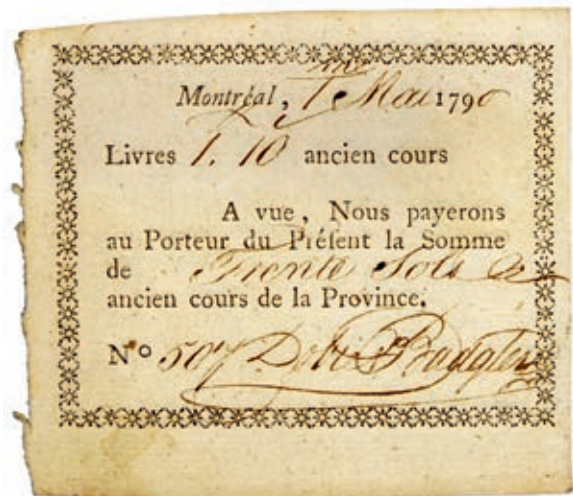 Montréal, 1 Mai 1790
Livres 1. 10 ancien cours
A vue, Nous payerons
au Porteur du Préſent la Somme
de Trente Sols
ancien cours de la Province.
Nº 507 Dobie & Badgley